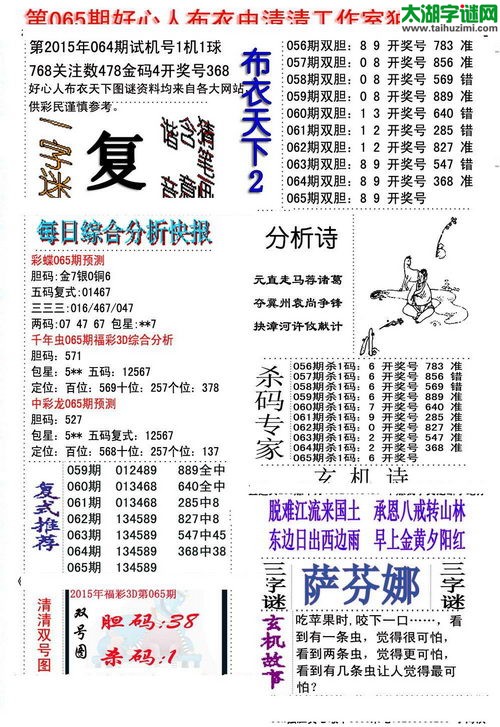 第065期好心人布衣虫清清工作室
太湖字谜网
www.taihuzimi.com
第2015年064期试机号1机1球
768关注数478金码4开奖号368
好心人布衣天下图谜资料均来自各大网站,
供彩民谨慎参考。
一字迷
复
布衣天下2
056期双胆: 8 9 开奖号 783 准
057期双胆: 0 8 开奖号 856 准
058期双胆: 0 8 开奖号 569 错
059期双胆: 0 8 开奖号 889 准
060期双胆: 1 3 开奖号 640 错
061期双胆: 1 2 开奖号 285 准
062期双胆: 1 2 开奖号 827 准
063期双胆: 8 9 开奖号 547 错
064期双胆: 8 9 开奖号 368 准
065期双胆: 8 9 开奖号
每日综合分析快报
彩蝶065期预测
胆码:金7银0铜6
五码复式:01467
三三三:016/467/047
两码:07 47 67 包星:**7
千年虫065期福彩3D综合分析
胆码: 571
包星: 5** 五码: 12567
定位: 百位: 569十位: 257个位: 378
中彩龙065期预测
胆码: 527
包星: 5** 五码复式: 12567
定位: 百位: 568十位: 257个位: 137
分析诗
元直走马荐诸葛
夺冀州袁尚争锋
挟漳河许攸献计
杀码专家
056期杀1码: 6 开奖号 783 准
057期杀1码: 6 开奖号 856 错
058期杀1码: 6 开奖号 569 错
059期杀1码: 6 开奖号 889 准
060期杀1码: 7 开奖号 640 准
061期杀1码: 9 开奖号 285 准
062期杀1码: 0 开奖号 827 准
063期杀1码: 2 开奖号 547 准
064期杀1码: 2 开奖号 368 准
065期杀1码: 6 开奖号
复式推荐
059期 012489 889全中
060期 013468 640全中
061期 013468 285中8
062期 134589 827中8
063期 134589 547中45
064期 134589 368中38
065期 134589
玄机诗
脱难江流来国土 承恩八戒转山林
东边日出西边雨 早上金黄夕阳红
清清双号图
2015年福彩3D第065期
双号图
胆码:38
杀码:1
三字谜
萨芬娜
三字谜
玄机故事
吃苹果时,咬下一口……,看
到有一条虫,觉得很可怕,
看到两条虫,觉得更可怕,
看到有几条虫让人觉得最可
怕?